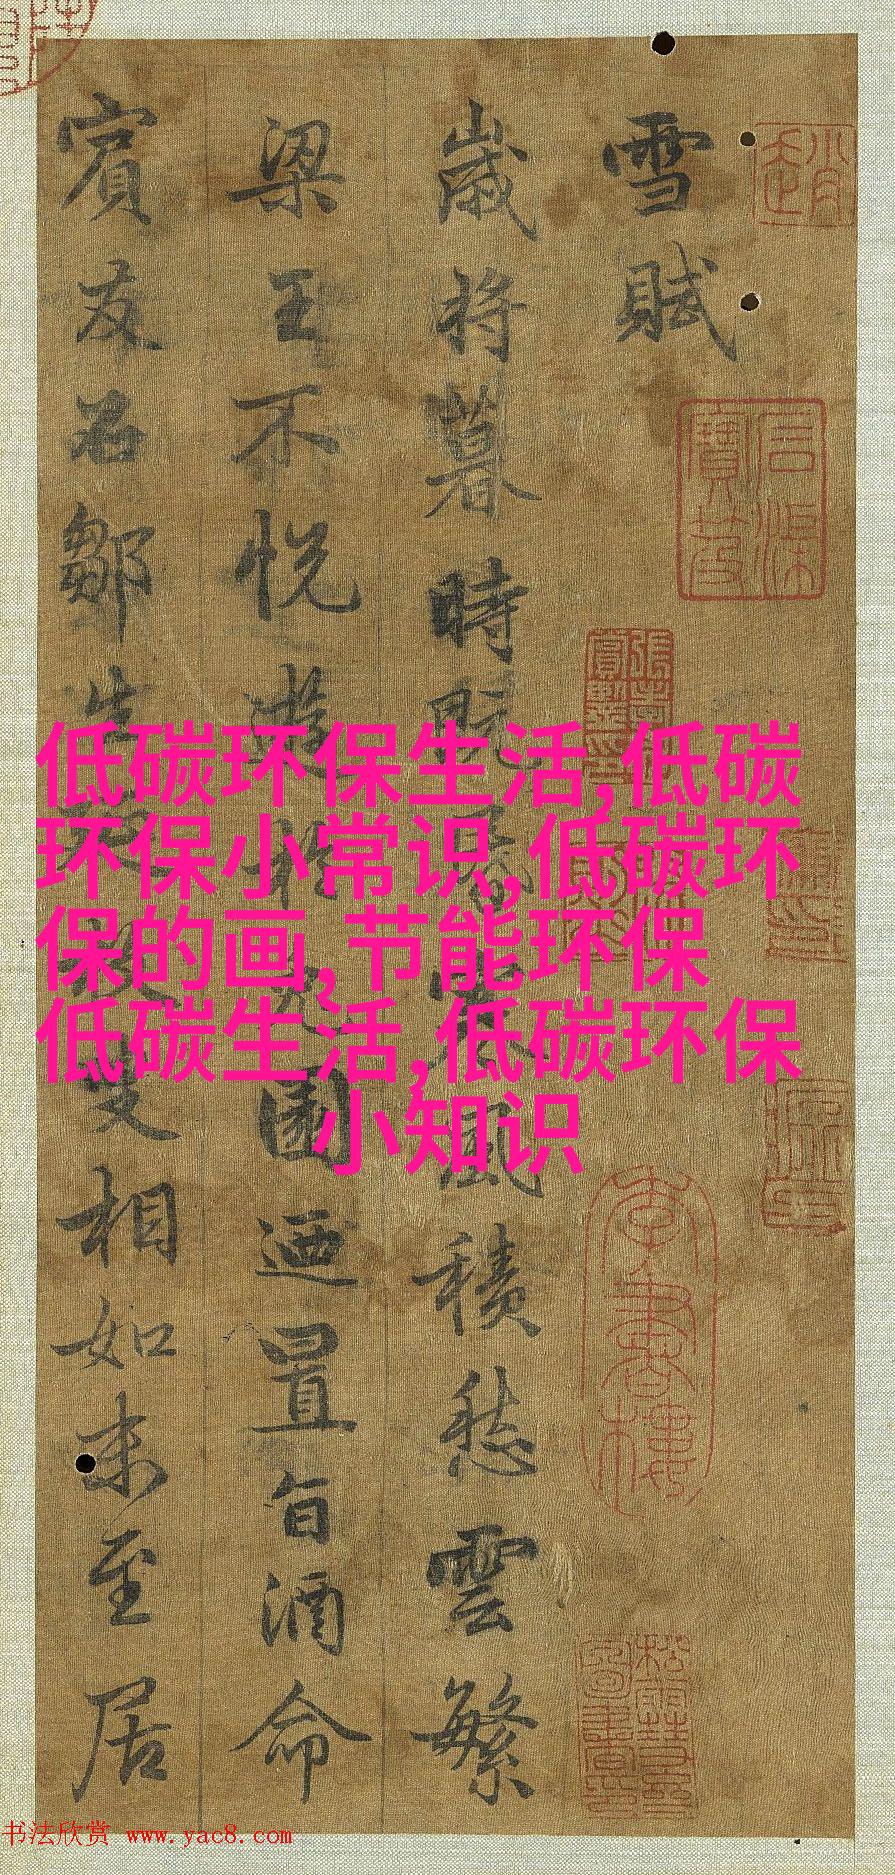 雪賦
歲將暮時既昏寒風積愁雲繁
梁王不悅遊於兔園迺置旨酒命
賓友召鄒生延枚叟相如末至居
低碳环保生活,低碳
环保小常识,低碳环
保的画,节能环保
低碳生活,低碳环保
小知识
书法欣赏 www.yac8.com